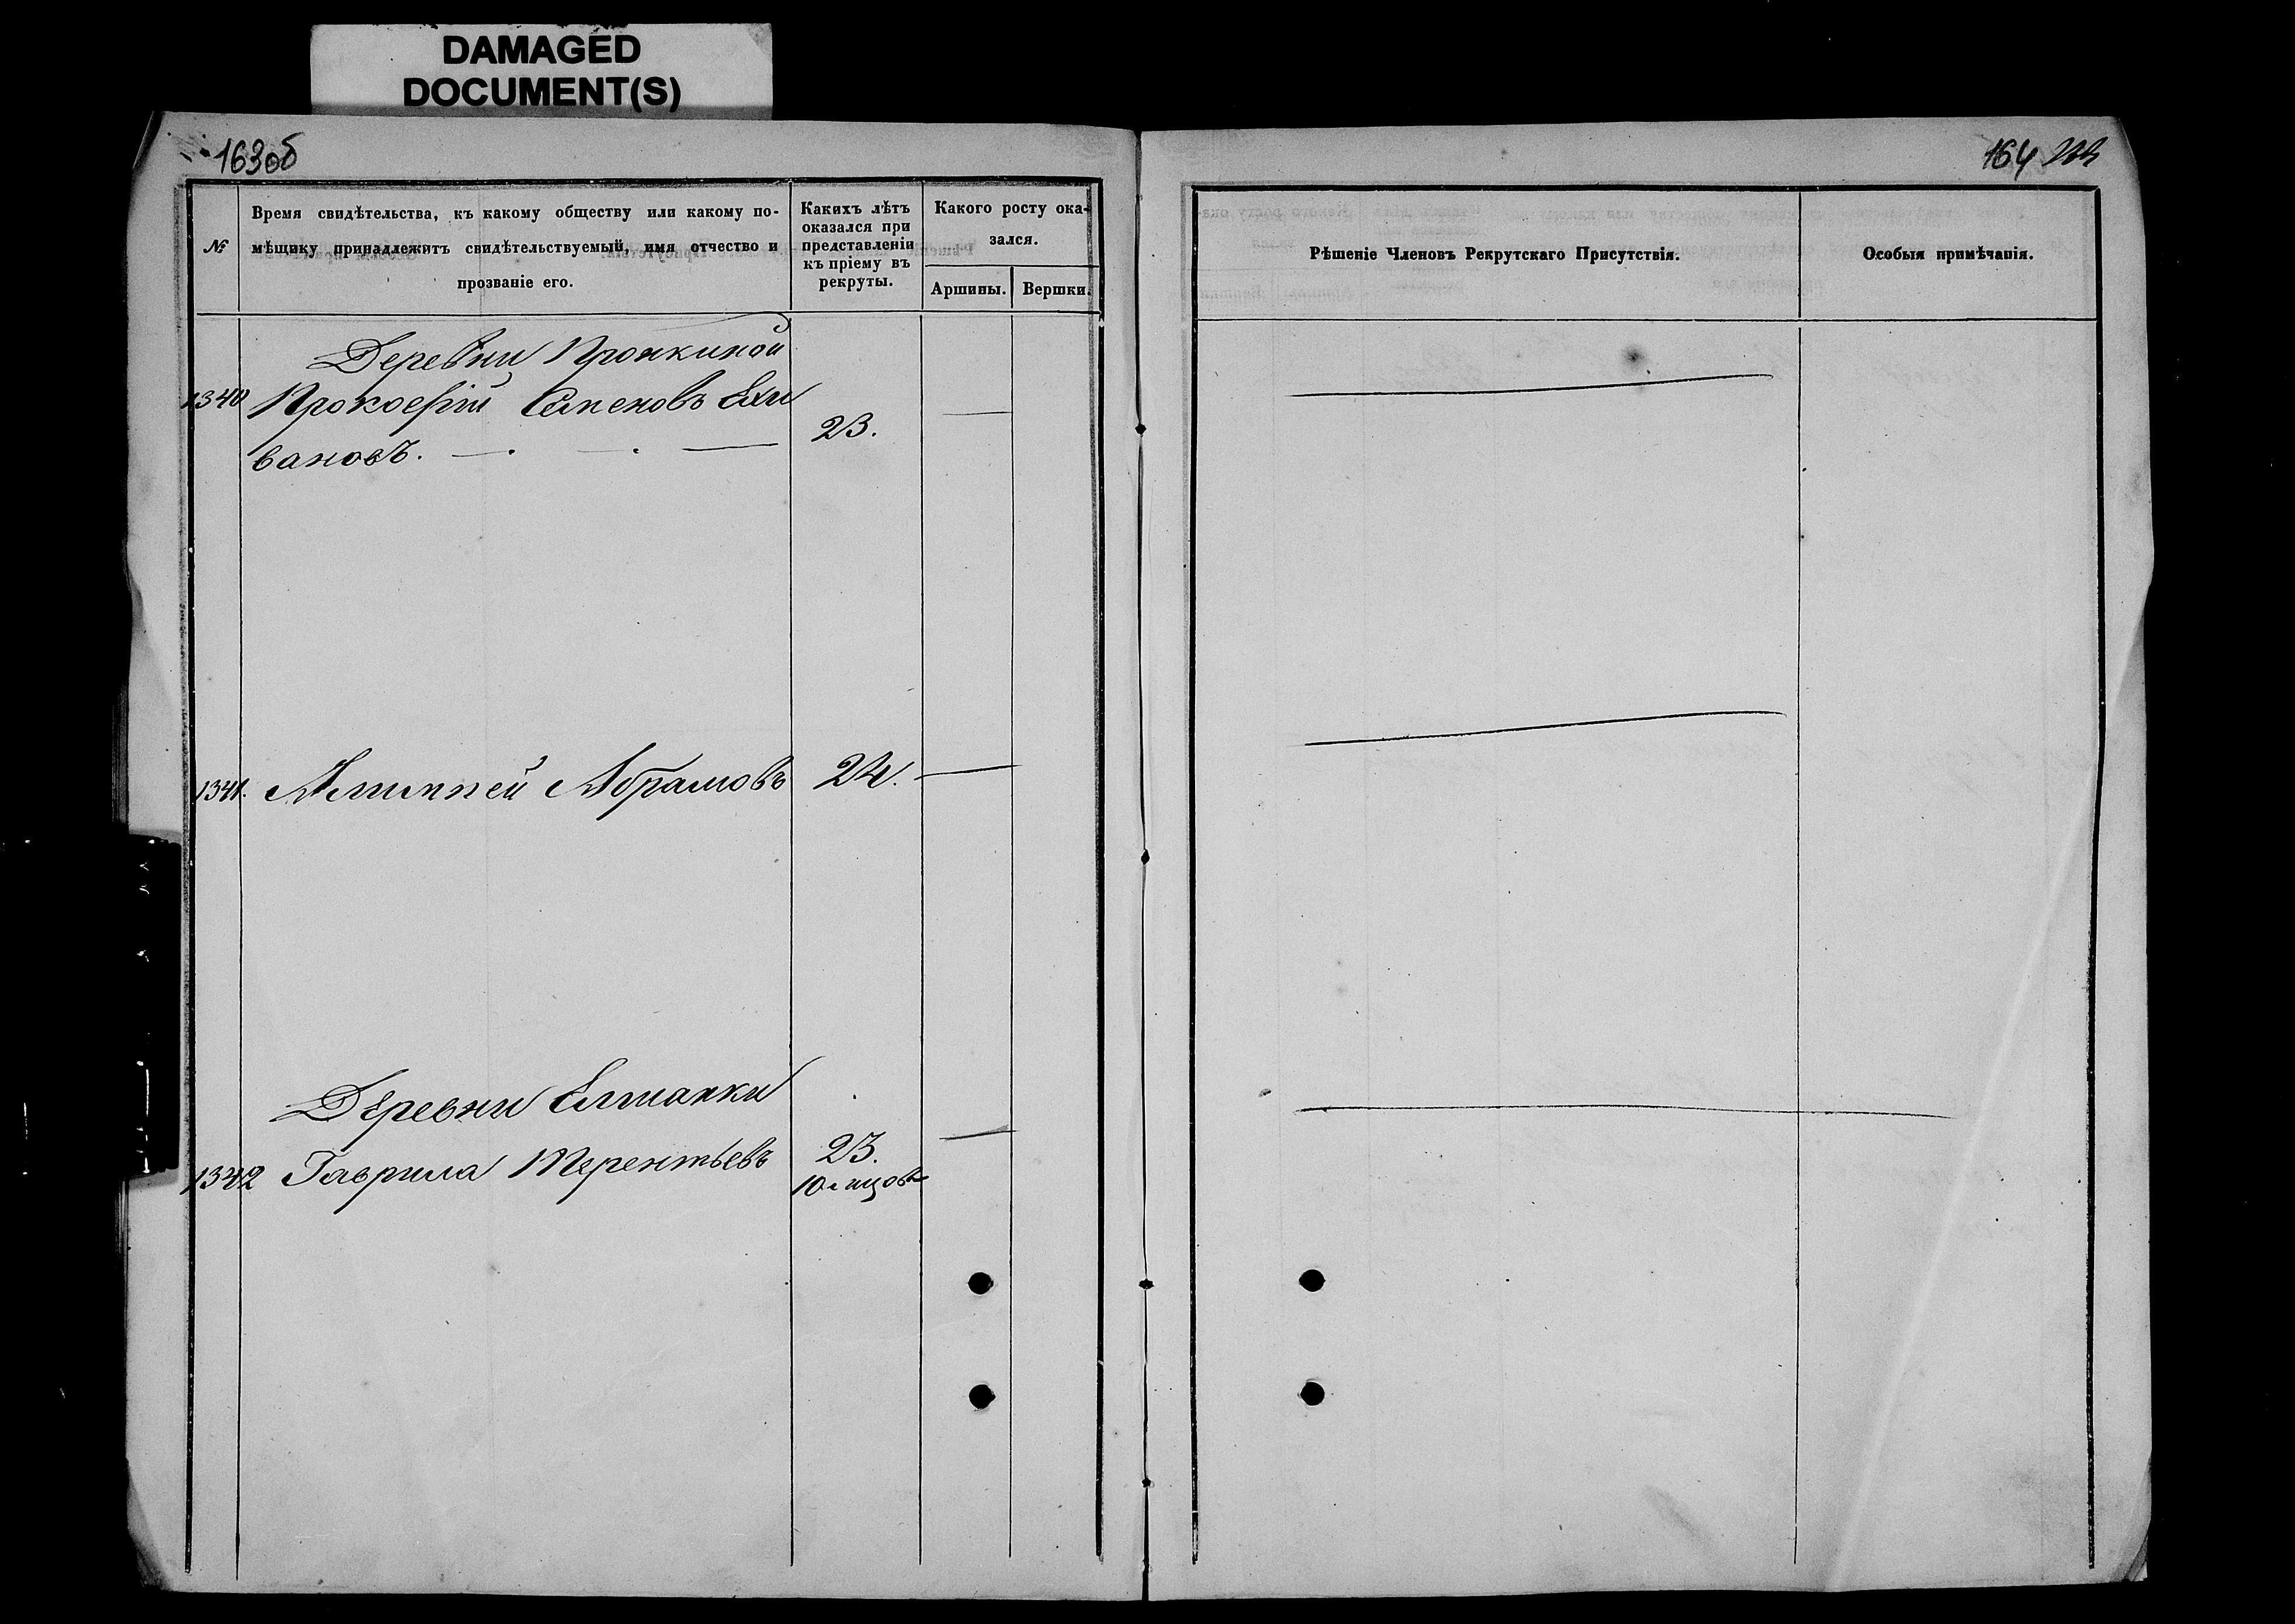 DAMAGED
DOCUMENT(S)
163об
164
№
Время свидѣтельства, къ какому обществу или какому по-
мѣщику принадлежитъ свидѣтельствуемый, имя отчество и
прозваніе его.
Какихъ лѣтъ
оказался при
представленіи
къ пріему въ
рекруты.
Какого росту ока-
зался.
Аршины. Вершки.
Рѣшеніе Членовъ Рекрутскаго Присутствія.
Особыя примѣчанія.
Деревни Пронкиной
1340 Прокофій Семеновъ Ели
вановъ. 23.
1341. Абрамовъ 24.
Деревни Елшанки
1342 Гаврила Терентьевъ 23.